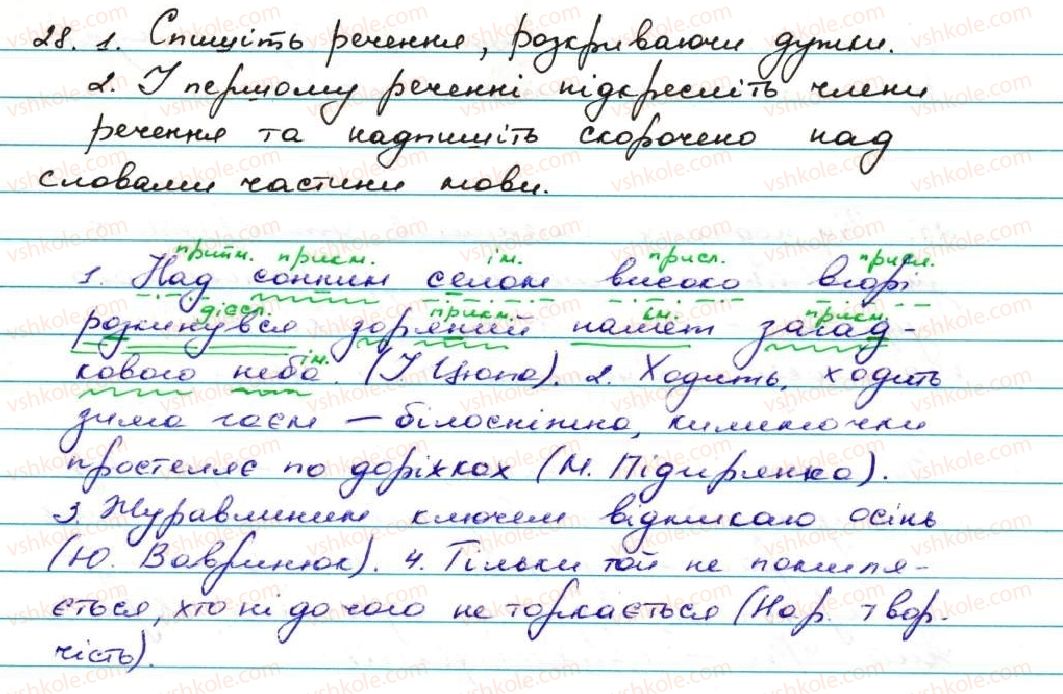 28. 1. Спишіть речення, розкриваючи дужки.
2. У першому реченні підкресліть члени
речення та надпишіть скорочено над
словами частини мови.
прийм. прикм. ім. присл. присл.
1. Над сонним селом високо вгорі
дієсл. прикм. ім. прикм.
розкинувся зоряний намет загад-
ім.
кового неба. (І. Цюпа). 2. Ходить, ходить
зима гаєм – білосніжна, килимочки
простеляє по доріжках (М. Підгірянка).
3. Журавлиним ключем відмикаю осінь
(Ю. Вавринюк). 4. Тільки той не помиля-
ється, хто ні до чого не торкається (Нар. твор-
чість).